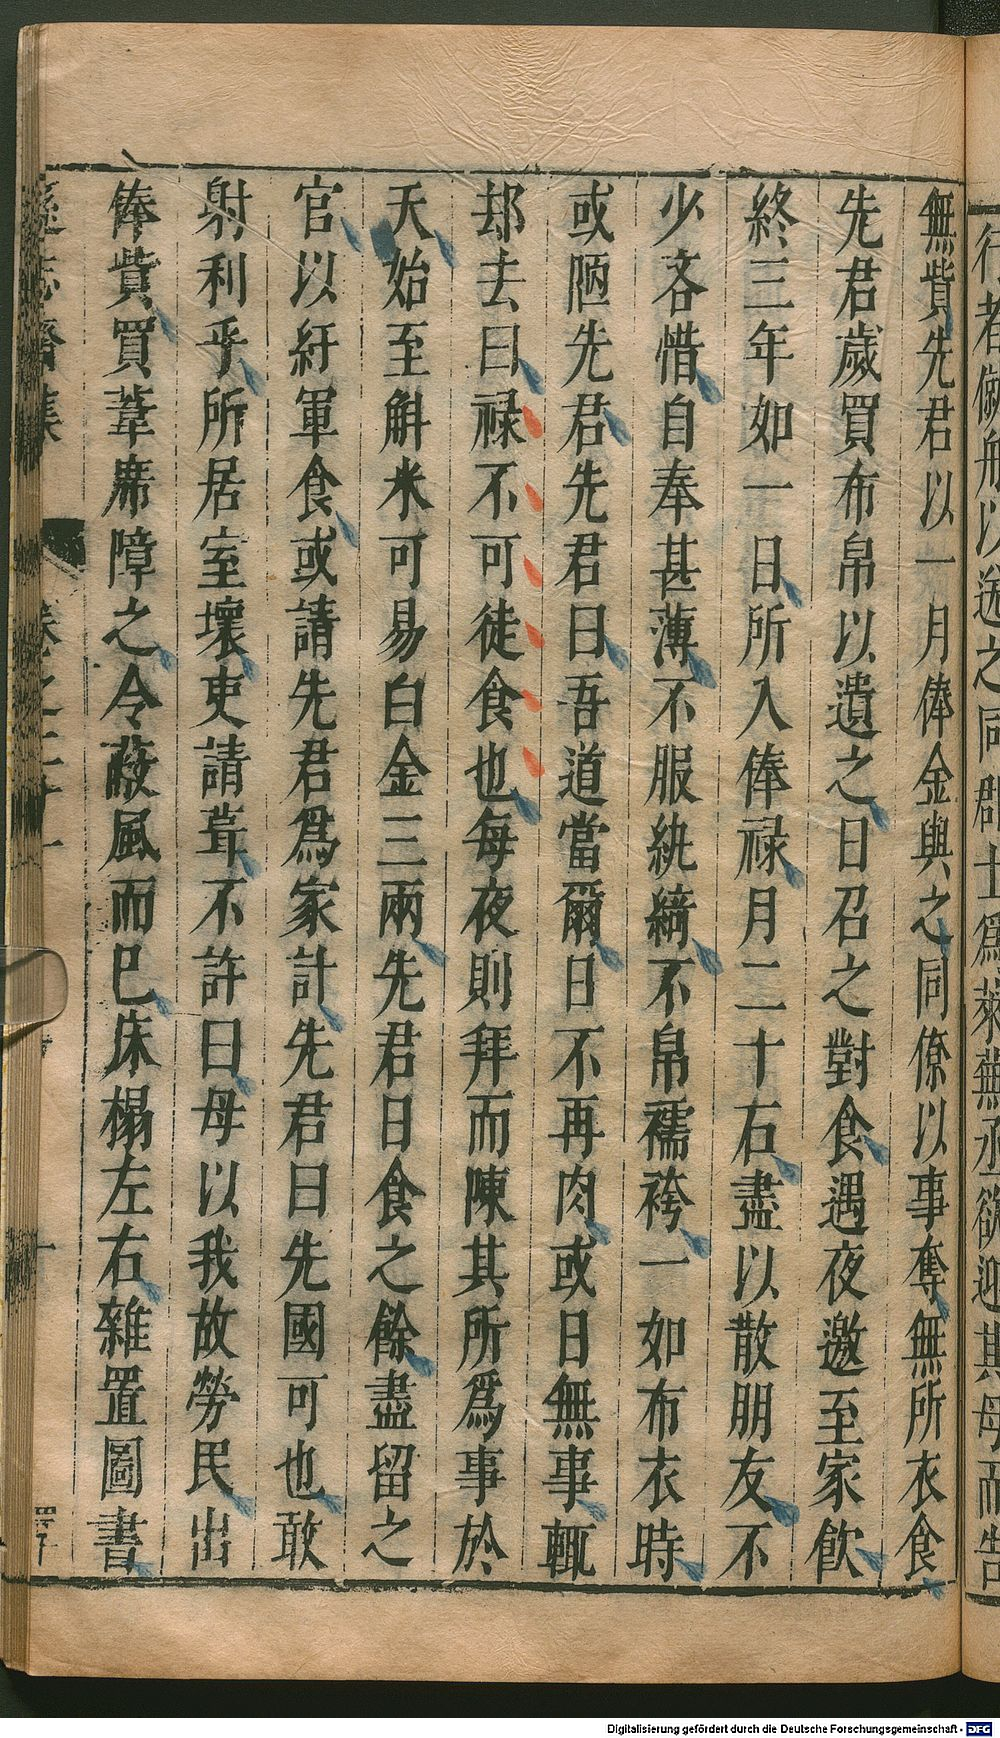 行者僦舟以送之同郡士為萊蕪丞欲迎其母而告
無貲先君以一月俸金與之同僚以事奪無所衣食
先君歲買布帛以遺之日召之對食遇夜邀至家飲
終三年如一日所入俸禄月二十石盡以散朋友不
少吝惜自奉甚薄不服紈綺不帛襦袴一如布衣時
或陋先君先君曰吾道當爾日不再肉或日無事輒
却去曰禄不可徒食也每夜則拜而陳其所爲事於
天始至斛米可易白金三兩先君日食之餘盡留之
官以紓軍食或請先君爲家計先君曰先國可也敢
射利乎所居室壞吏請葺不許曰毋以我故勞民出
俸貲買葦席障之令蔽風而已床榻左右雜置圖書
遜志齋集
卷之二十一
Digitalisierung gefördert durch die Deutsche Forschungsgemeinschaft - DFG